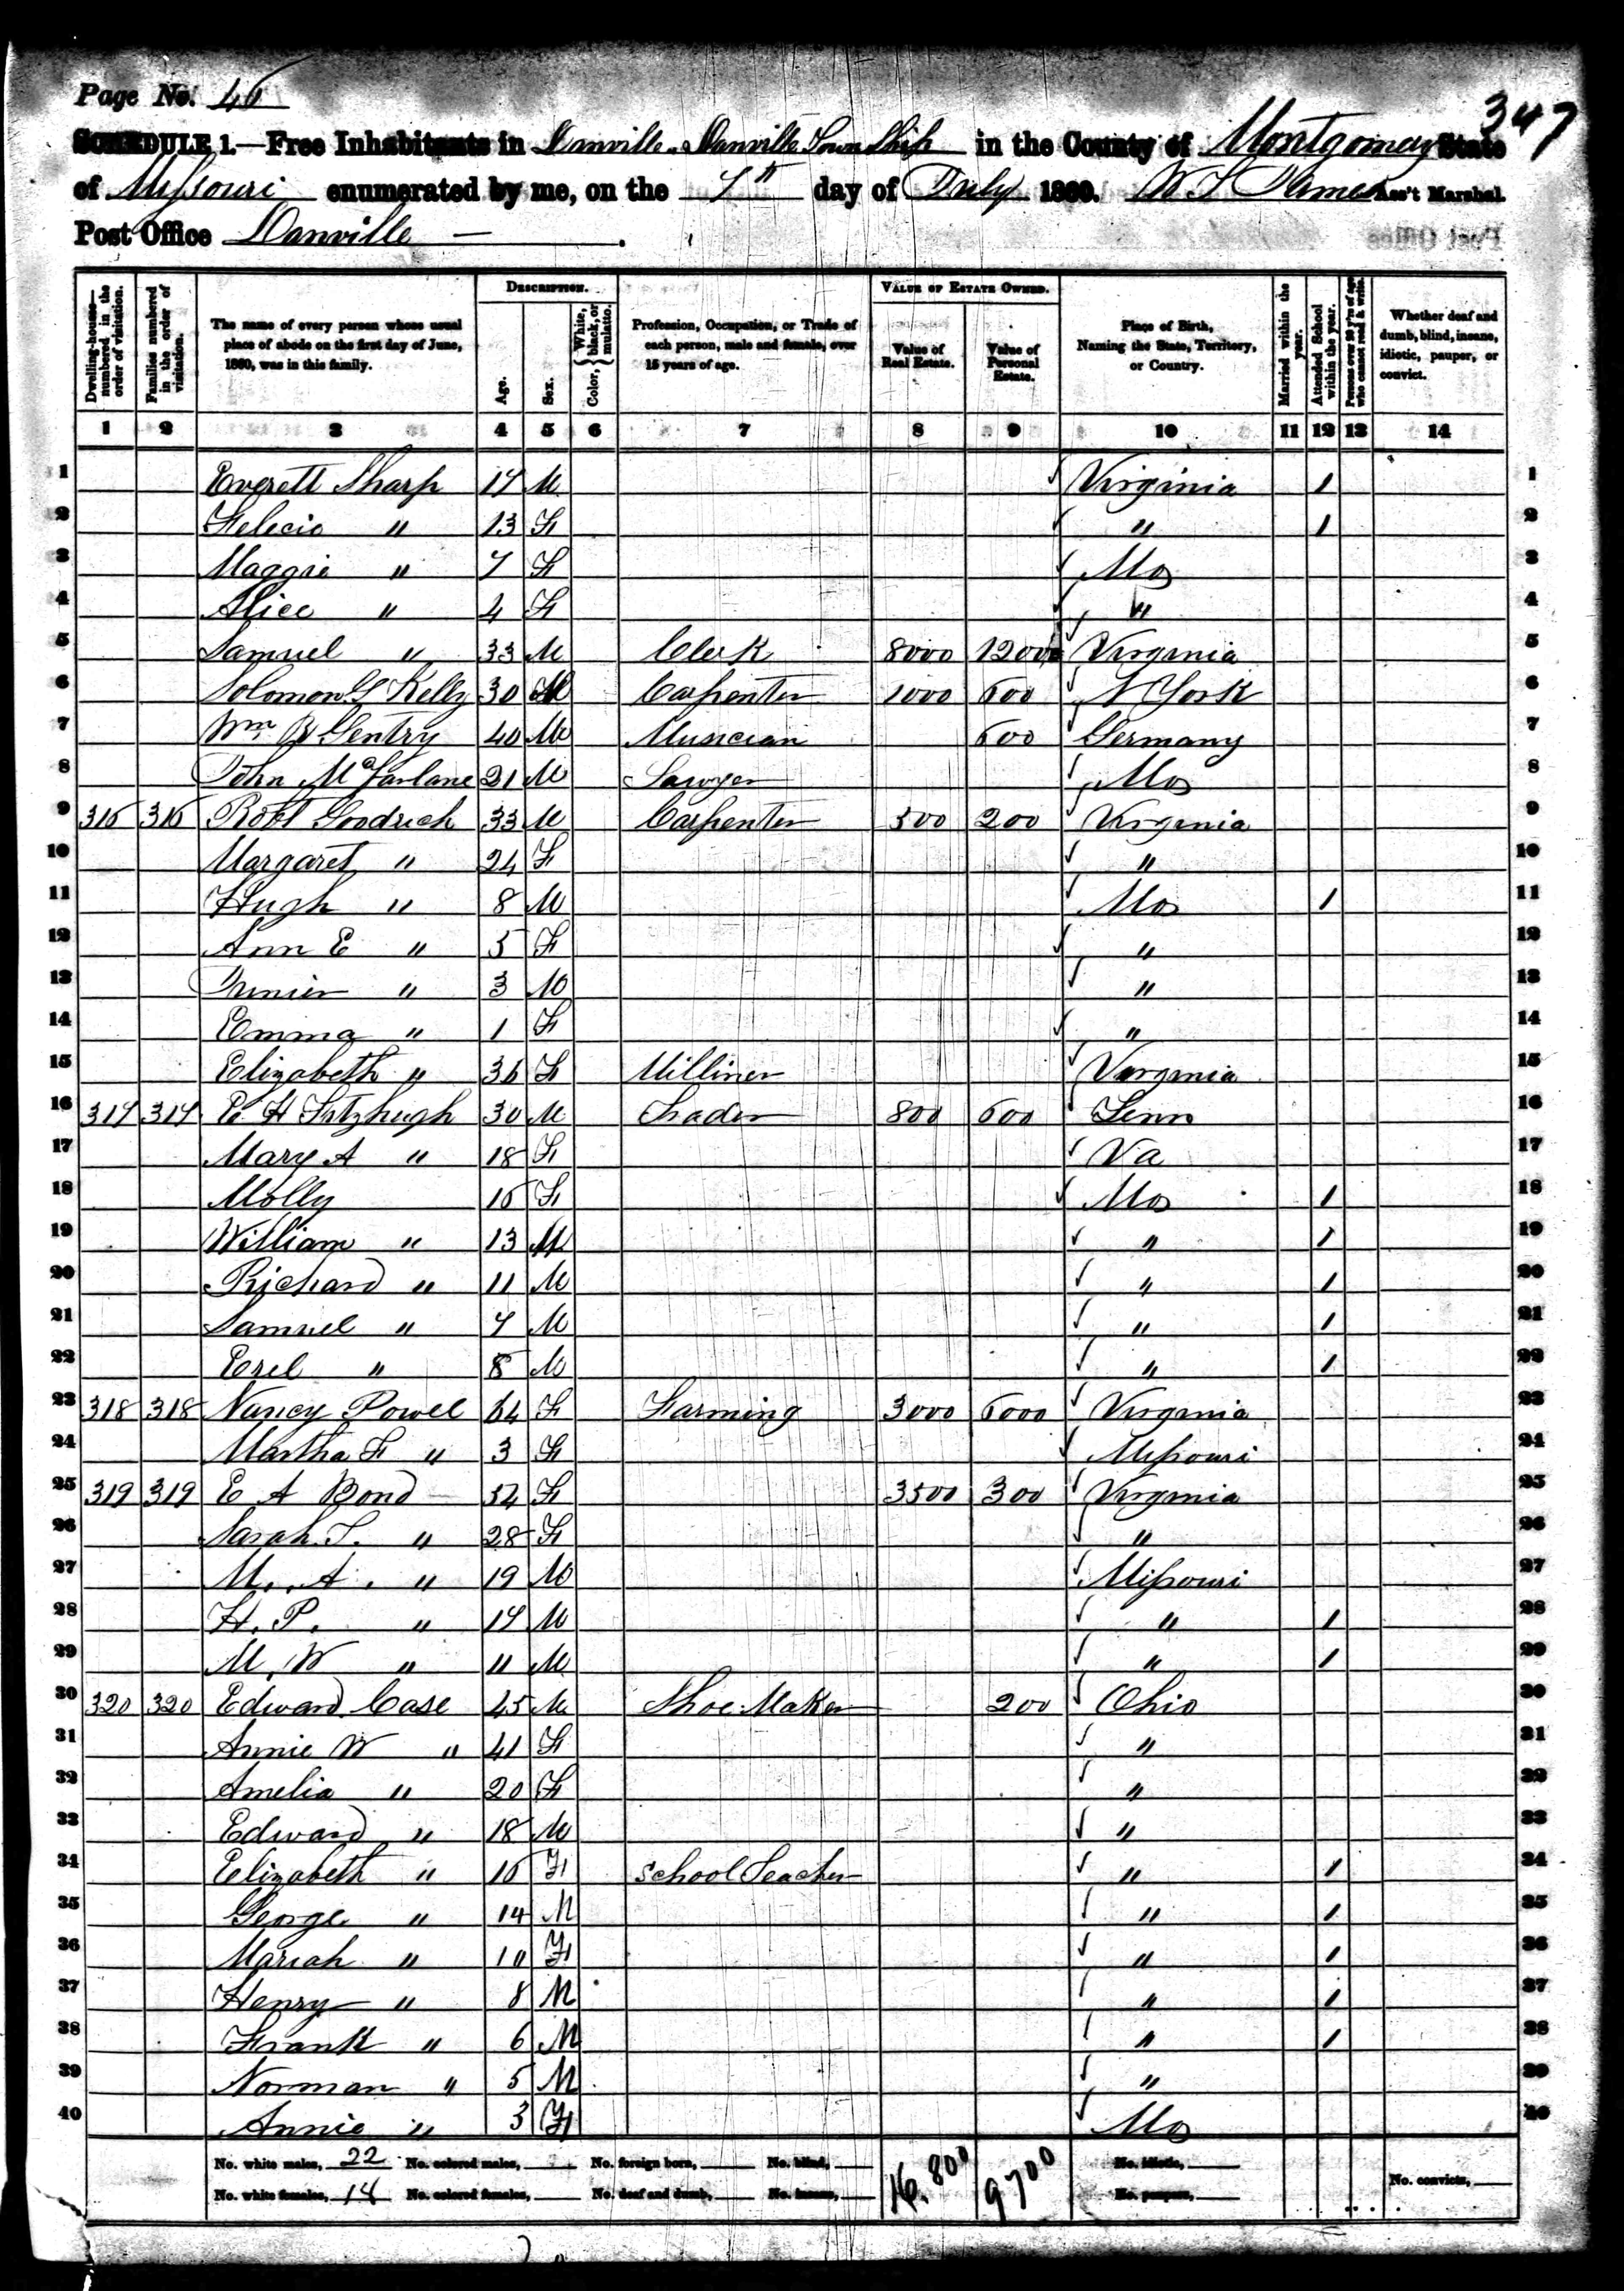 Page No. 46
347
SCHEDULE 1.—Free Inhabitants in Danville, Danville Township in the County of Montgomery State
of Missouri enumerated by me, on the 7th day of July 1860. Ass't Marshal.
Post Office Danville
Dwelling-house—numbered in the order of visitation.
Families numbered in the order of visitation.
The name of every person whose usual place of abode on the first day of June, 1860, was in this family.
DESCRIPTION.
Age.
Sex.
Color, { White, black, or mulatto.
Profession, Occupation, or Trade of each person, male and female, over 15 years of age.
VALUE OF ESTATE OWNED.
Value of Real Estate.
Value of Personal Estate.
Place of Birth, Naming the State, Territory, or Country.
Married within the year.
Attended School within the year.
Persons over 20 y'rs of age who cannot read & write.
Whether deaf and dumb, blind, insane, idiotic, pauper, or convict.
1 2 3 4 5 6 7 8 9 10 11 12 13 14
1 Everett Sharp 17 M Virginia 1 1
2 Felecia " 13 F " 1 2
3 Maggie " 7 F Mo 3
4 Alice " 4 F " 4
5 Samuel " 33 M Clerk 8000 Virginia 5
6 Solomon G Kelly 30 M Carpenter 1000 600 N York 6
7 Wm B Gentry 40 M Musician 600 Germany 7
8 John McFarlane 21 M Sawyer Mo 8
9 316 316 Robt Goodrich 33 M Carpenter 500 200 Virginia 9
10 Margaret " 24 F " 10
11 Hugh " 8 M Mo 1 11
12 Ann E " 5 F " 12
13 Junier " 3 M " 13
14 Emma " 1 F " 14
15 Elizabeth " 36 F Milliner Virginia 15
16 317 317 E H Fitzhugh 30 M Trader 800 600 Tenn 16
17 Mary A " 18 F Va 17
18 Molly 16 F Mo 1 18
19 William " 13 M " 1 19
20 Richard " 11 M " 1 20
21 Samuel " 7 M " 1 21
22 Ezel " M " 1 22
23 318 318 Nancy Powel 64 F Farming 3000 6000 Virginia 23
24 Martha F " 3 F Missouri 24
25 319 319 E A Bond 54 F 3500 300 Virginia 25
26 Sarah T. " 28 F " 26
27 M. A. " 19 M Missouri 27
28 H. P. " 17 M " 1 28
29 M. W " 11 M " 1 29
30 320 320 Edward Case 45 M Shoe Maker 200 Ohio 30
31 Annie W " 41 F " 31
32 Amelia " 20 F " 32
33 Edward " 18 M " 33
34 Elizabeth " 16 F School Teacher " 1 34
35 George " 14 M " 1 35
36 Mariah " 10 F " 1 36
37 Henry " 8 M " 1 37
38 Frank " 6 M " 1 38
39 Norman " 5 M " 39
40 Annie " 3 F Mo 40
No. white males, 22 No. colored males, No. foreign born, No. blind, 16,800 9700 No. idiotic, No. convicts,
No. white females, 18 No. colored females, No. deaf and dumb, No. insane, No. paupers,